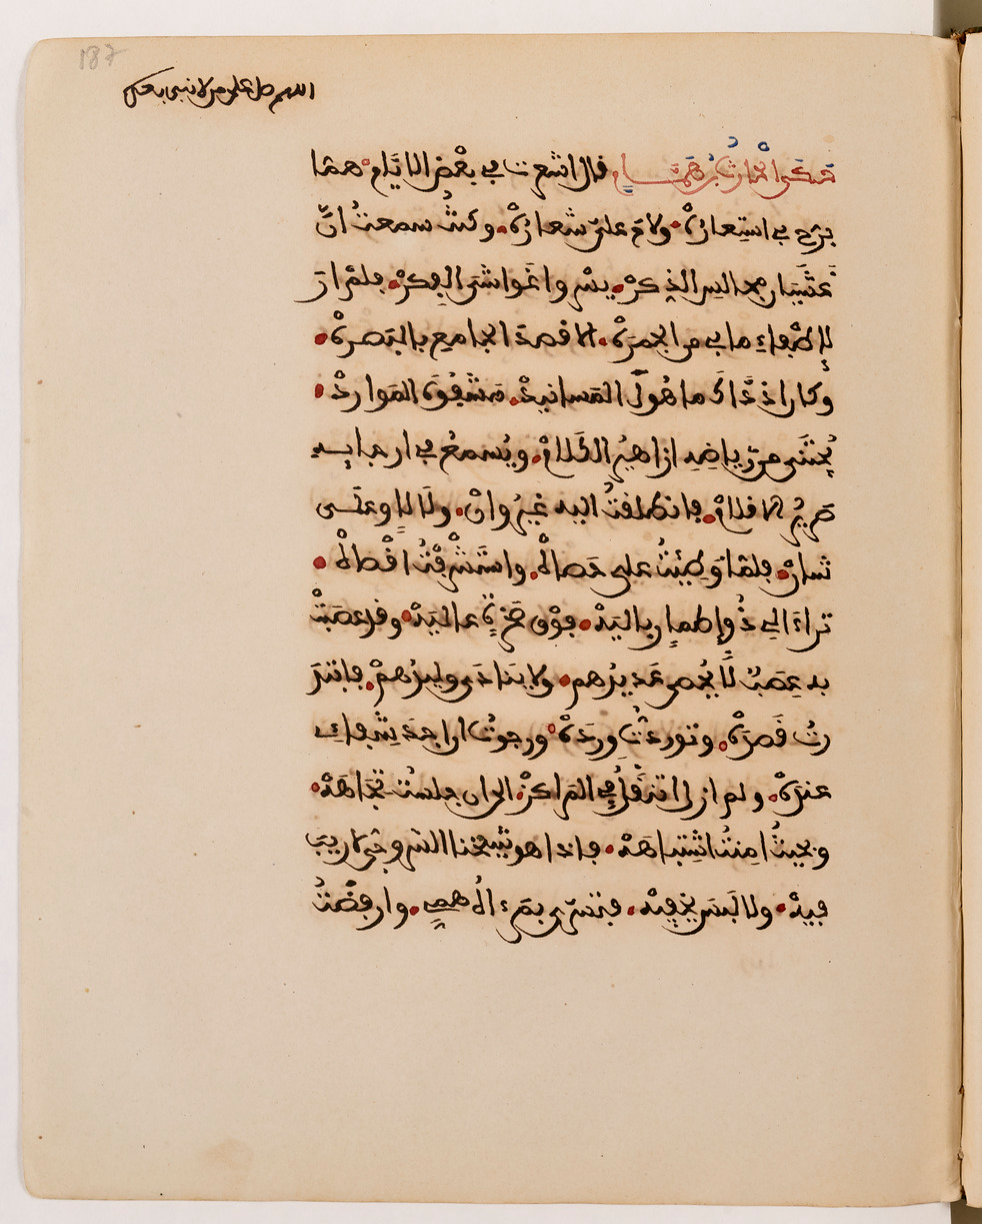 اللهم صل على من لا نبي بعده
حَكَى الْحَارِثُ بْنُ هَمَّامٍ قال اشعرت في بعْض الايَّام همّا
برّح بي استِعارُهْ ولاحَ عليّ شعارُهْ وكنتُ سمعتُ انّ
غَشَيَان مجالس الذِكرْ يسْروا غَواشىَ الفِكرْ فلمْ ارَ
لإطْفاءِ ما بي من الجمرَهْ الا قصدَ الجامع بالبَصرهْ
وكان اذ ذَّاكَ ما هُولَ المَسانيدْ مَشْفُوهَ المَواردْ
يُجتنَى من رّياضِهِ ازاهيُر الكَلامْ ويُسمعُ في ارجايِهِ
صَريرُ الاقلامْ فانطلقتُ اليه غيرُ وانْ ولَا لاوٍ علَى
شانْ فلمّا وَطِئْتُ على حَصاهْ واستَشْرفْتُ اقْصاهْ
تراءَا لِي ذُو اطمارٍ باليَهْ فوْق صَخرةٍ عاليَهْ وقد عصَبتْ
به عِصَبٌ لَّا يُحْصى عَديدُهم ولا ينَادَى وليدُهمْ فابتدَ
رتُ قَصدَهْ وتوردتُ وردَهْ ورجوتُ ان اجدَ شِفاءِي
عندَهْ ولم ازل اتنقّلُ في المَراكزْ الى ان جلستُ تجَاهَهْ
وبحيثُ امِنتُ اشتِباهَهْ فاذا هو شيخنا السّروجي لا ريبَ
فيهْ ولا لَبسَ يخفِيهْ فتسرّى بمَرءاهُ همِّي وارفضّتْ